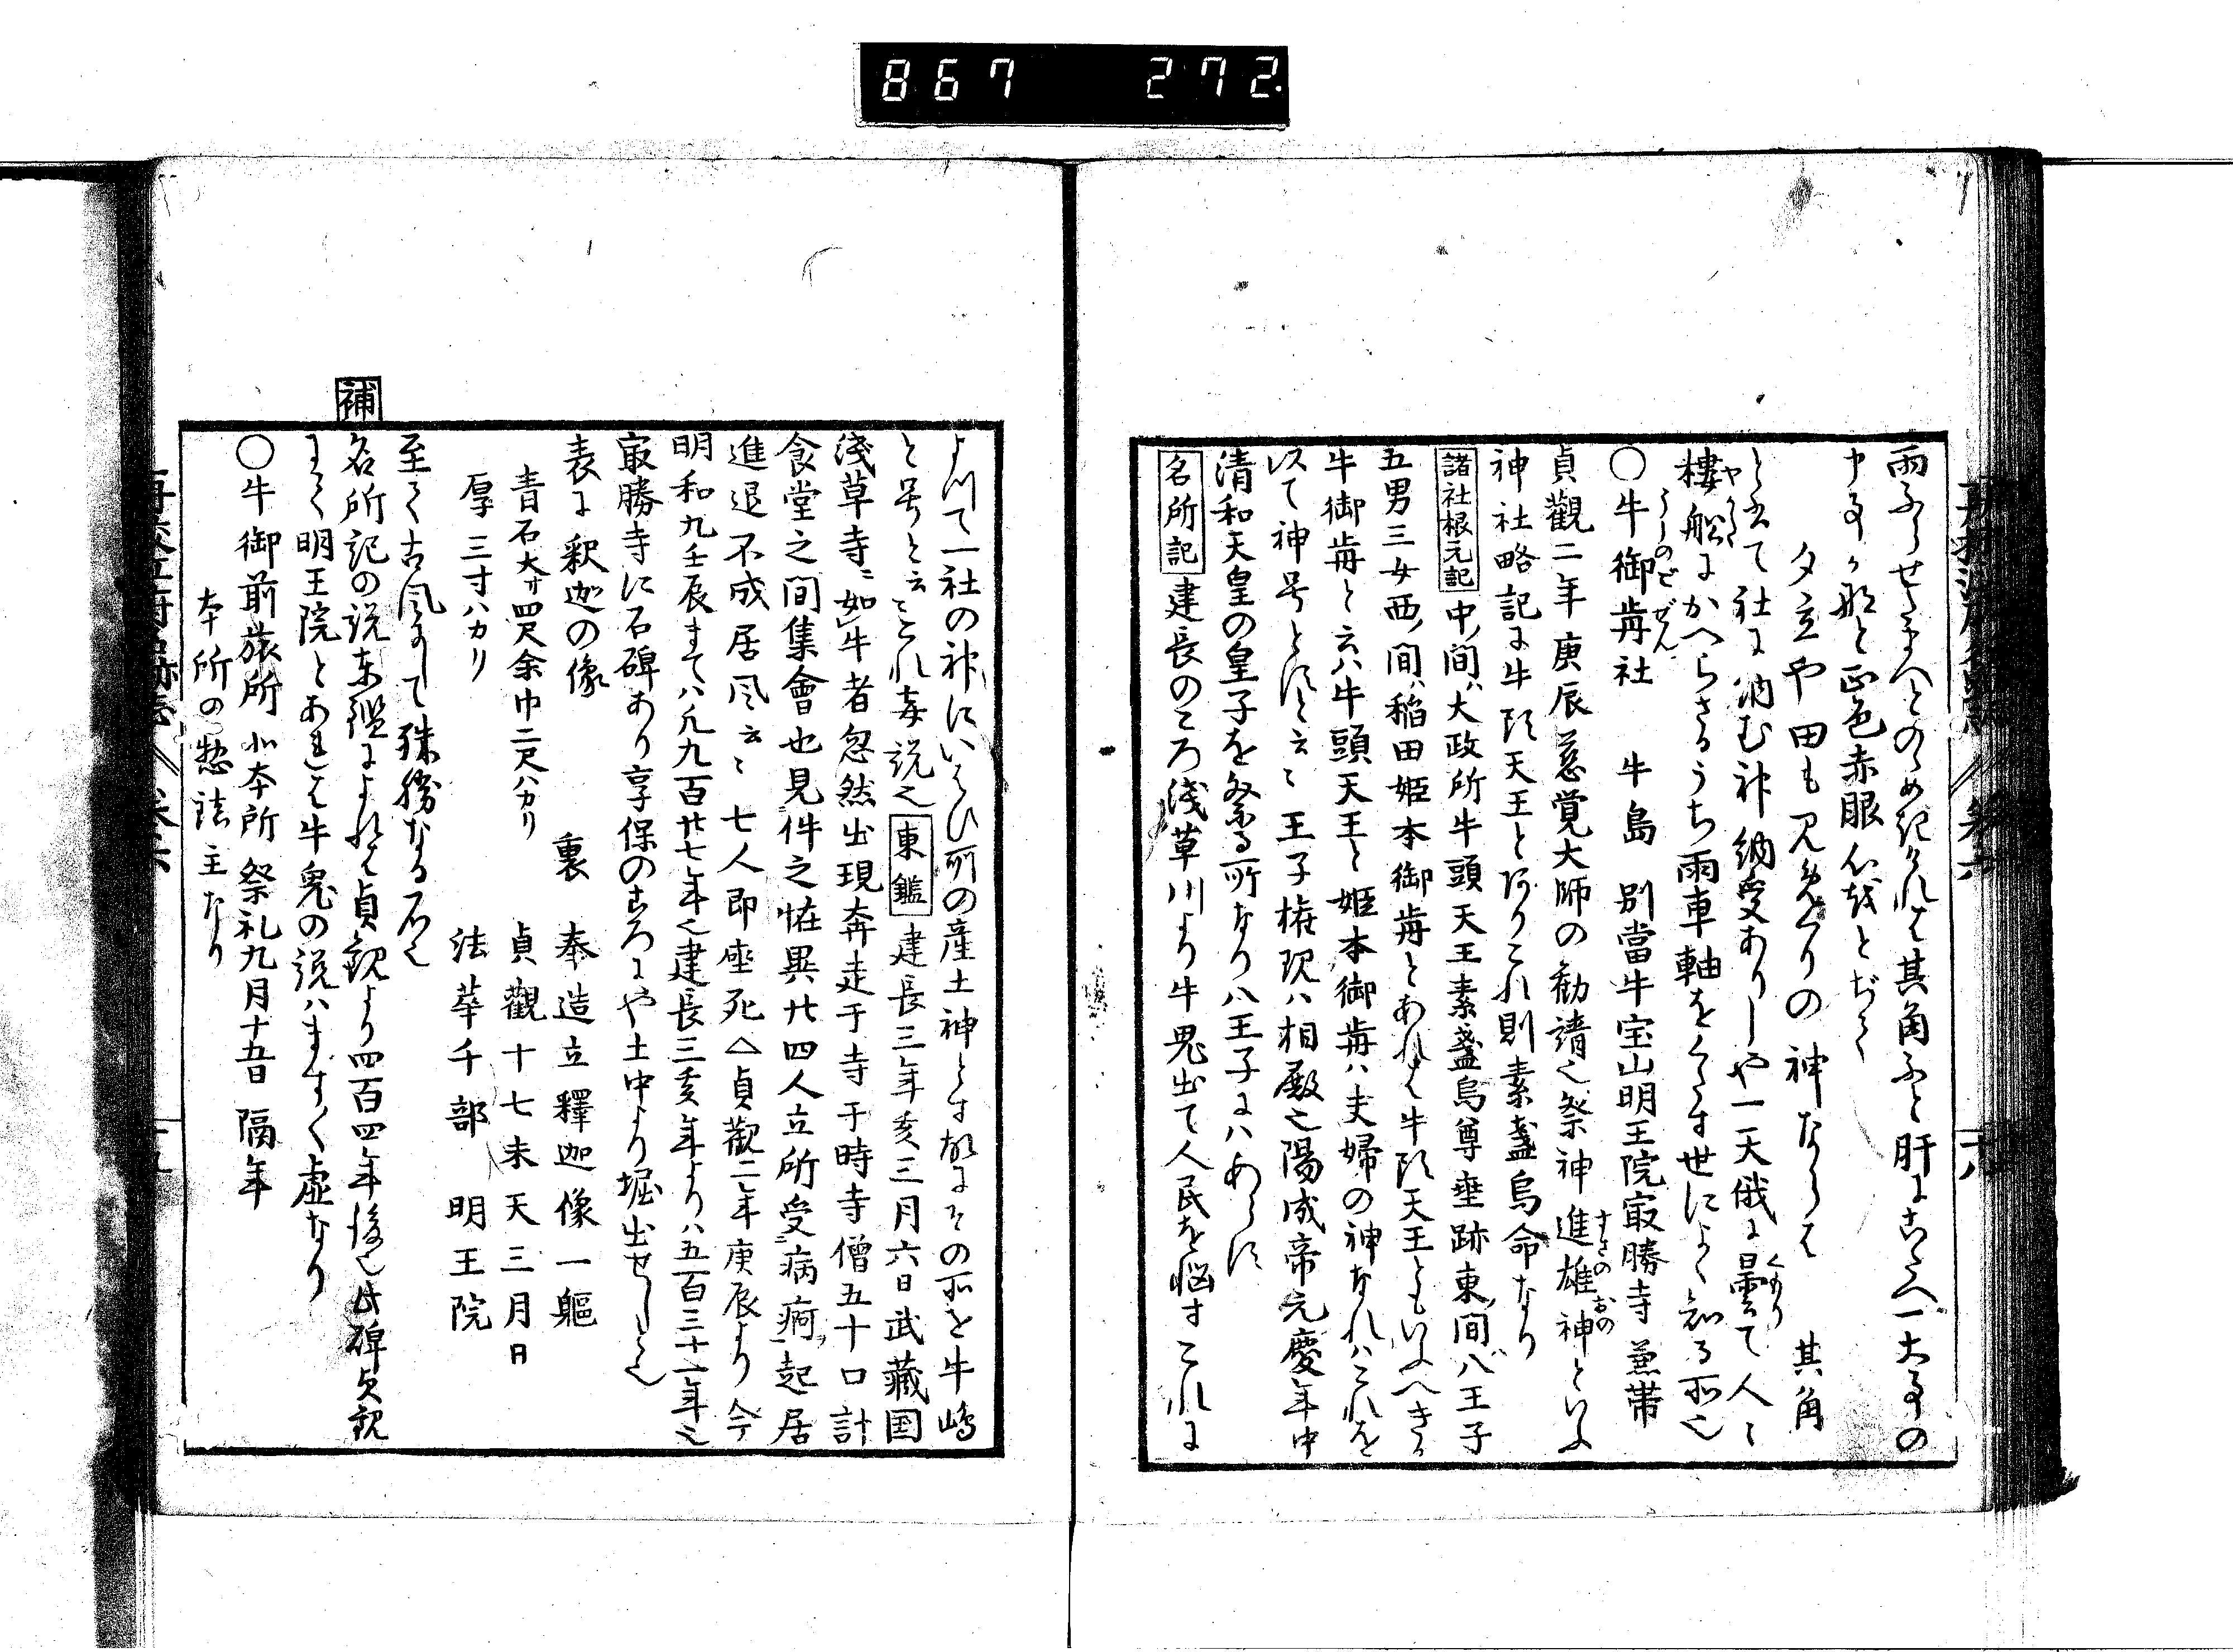 867 272.
雨ふらせたまへとのゝめきけれは其角ふと肝にこたへ一大事の
申事かなと正色赤眼心をとぢて
夕立や田も見めくりの神ならは 其角
と書て社に納む神納受ありしや一天俄に曇て人々
くもり
樓船にかへらさるうち雨車軸をくたす世によく知る所也
やかた
〇牛御歬社 牛島 別當牛宝山明王院最勝寺 兼帯
うしのごぜん
貞觀二年庚辰慈覚大師の勧請也祭神進雄神といふ
すさのおの
神社略記に牛頭天王とありこれ則素盞烏命なり
諸社根元記 中ノ間ハ大政所牛頭天王素盞烏尊垂跡東ノ間ハ八王子
五男三女西ノ間ハ稲田姫本御歬とあれは牛頭天王ともいふへきか
牛御歬と云ハ牛頭天王と姫本御歬ハ夫婦の神なれハこれを
以て神号とすと云々 王子権現ハ相殿也陽成帝元慶年中
清和天皇の皇子を祭る所なり八王子にハあらす
名所記 建長のころ浅草川より牛鬼出て人民を悩すこれに
よつて一社の神にいはひ所の産土神とす故にその所を牛嶋
と号と云々これ妄説也 東鑑 建長三年亥三月六日武藏国
淺草寺ニ如牛者忽然出現奔走于寺于時寺僧五十口計
食堂之間集會也見件之恠異廿四人立所受病痾起居
進退不成居風云々 七人即座死△貞觀二年庚辰より今
明和九壬辰まてハ凢九百廿七年也建長三亥年よりハ五百三十一年也
最勝寺に石碑あり享保のころにや土中より堀出せしと也
表に釈迦の像 裏 奉造立釋迦像一軀
青石大サ四尺余巾二尺ハカリ 貞觀十七未天三月日
厚三寸ハカリ 法華千部 明王院
至て古風にして殊勝なる石也
補 名所記の説東鑑によれは貞観より四百四年後也此碑矣観
にて明王院とあれは牛鬼の説ハますく虚なり
〇牛御前旅所 北本所 祭礼九月十五日 隔年
本所の惣鎮主なり